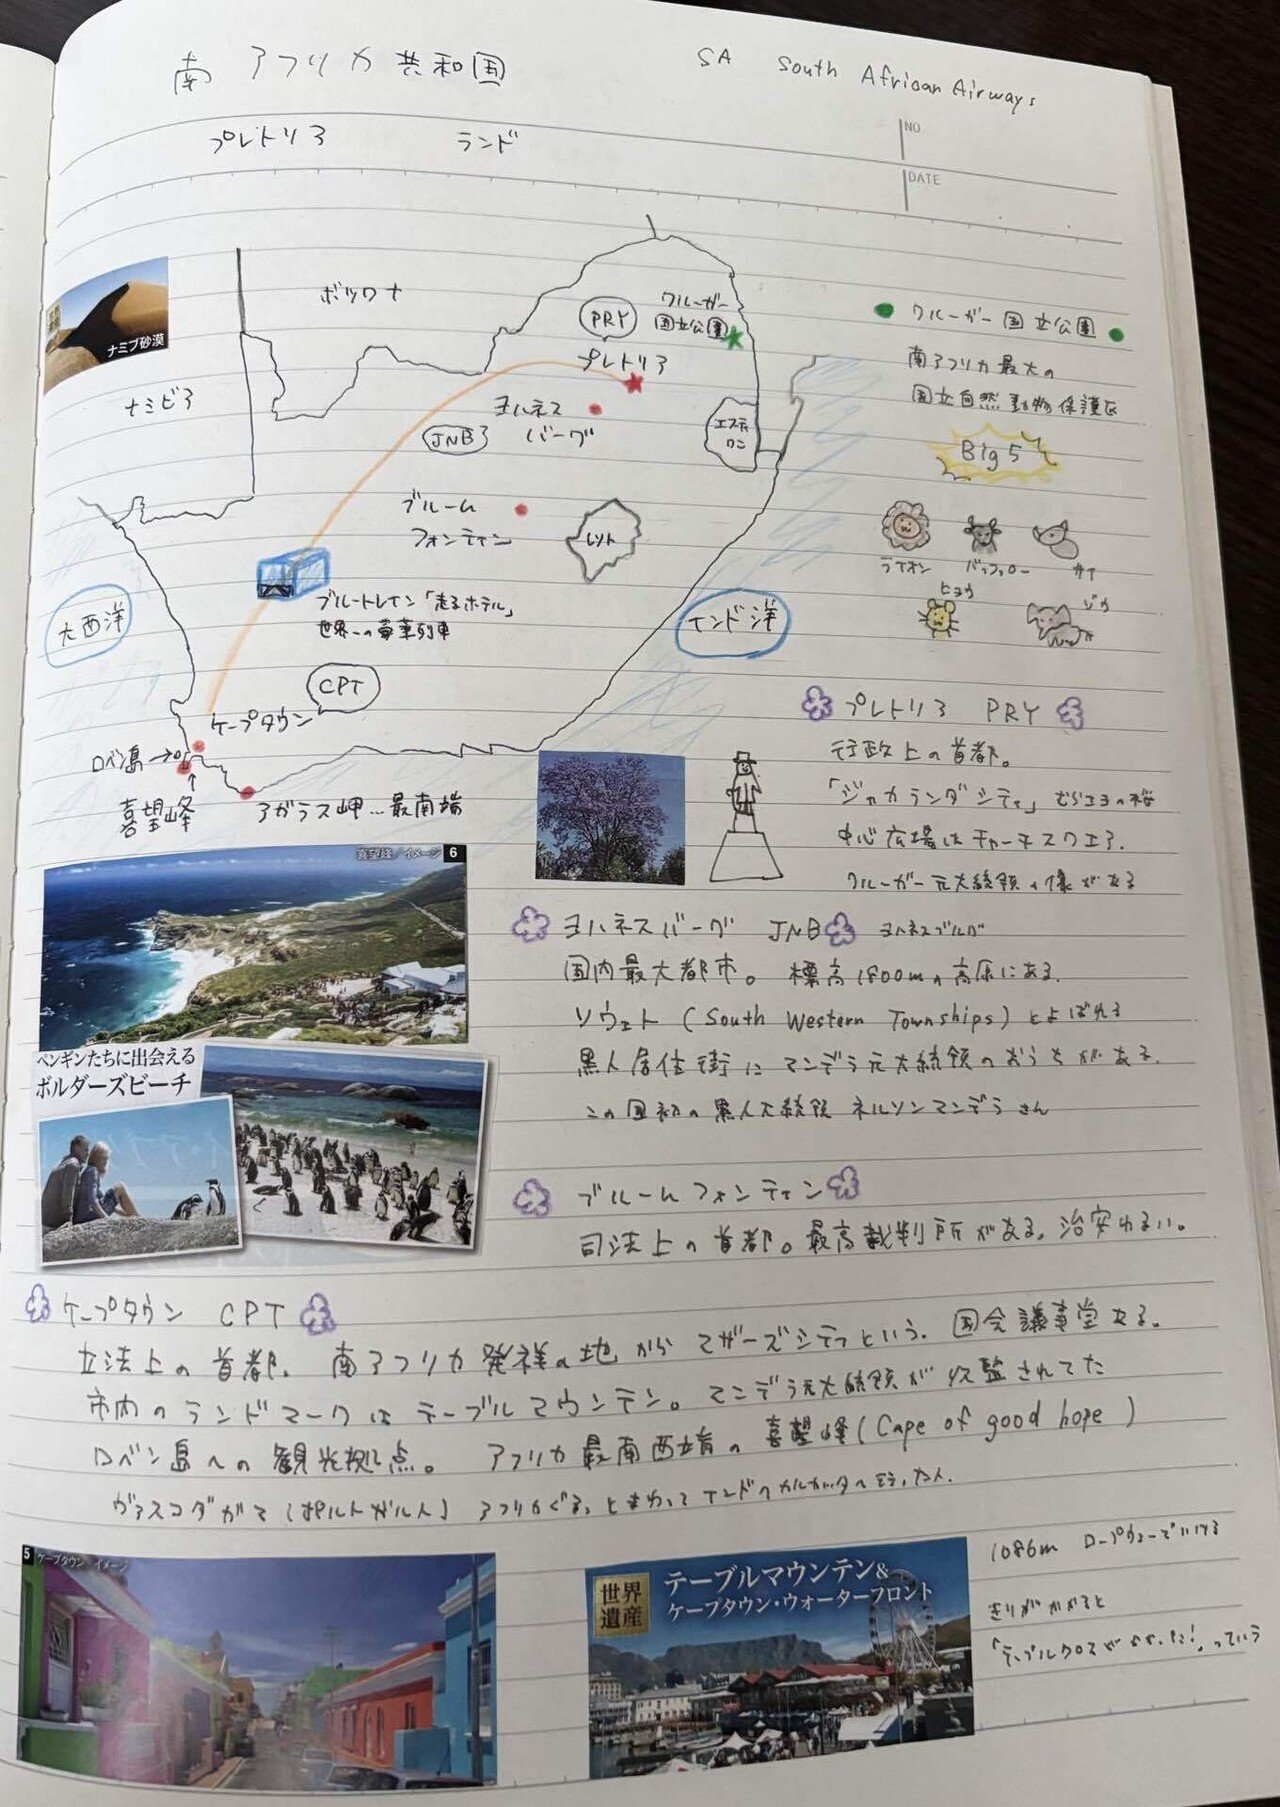 南アフリカ共和国
SA South African Airways
プレトリア ランド
NO.
DATE
ナミブ砂漠
ボツワナ
PRY
クルーガー
国立公園
プレトリア
ナミビア
ヨハネス
バーグ
JNB
エスティ
ワニ
ブルーム
フォンティン
レソト
ブルートレイン「走るホテル」
世界一の豪華列車
大西洋
インド洋
CPT
ケープタウン
ロベン島→
喜望峰
アガラス岬…最南端
クルーガー国立公園
南アフリカ最大の
国立自然動物保護区
Big5
ライオン
バッファロー
サイ
ヒョウ
ゾウ
プレトリア PRY
行政上の首都。
「ジャカランダシティ」むらさきの桜
中心広場はチャーチスクエア.
クルーガー元大統領の像がある
喜望峰/イメージ 6
ペンギンたちに出会える
ボルダーズビーチ
ヨハネスバーグ JNB ヨハネスブルグ
国内最大都市。標高1800mの高原にある.
ソウェト (South Western Townships) とよばれる
黒人居住街にマンデラ元大統領のおうちがある.
この国初の黒人大統領 ネルソンマンデラさん
ブルームフォンティン
司法上の首都。最高裁判所がある。治安わるい。
ケープタウン CPT
立法上の首都. 南アフリカ発祥の地からマザーズシティという. 国会議事堂ある.
市内のランドマークはテーブルマウンテン。マンデラ元大統領が収監されてた
ロベン島への観光拠点。 アフリカ最南西端の喜望峰(Cape of good hope)
ヴァスコダガマ(ポルトガル人) アフリカぐるっとまわってインドへカルカッタへ行った人.
5 ケープタウン イメージ
世界
遺産
テーブルマウンテン&
ケープタウン・ウォーターフロント
1086m ロープウェーでいける
きりがかかると
「テーブルクロスがかかった!」っていう